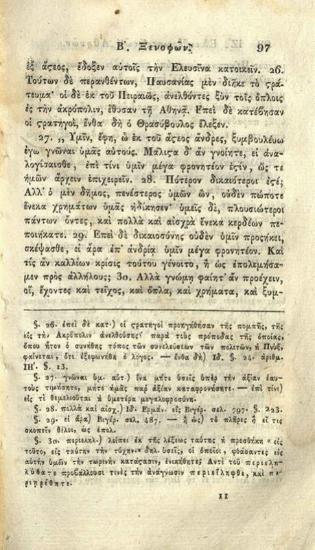 Β΄. Ξενοφῶν. 97
ἐξ ἄςεος, ἔδοξεν αὐτοῖς τὴν Ἐλευσῖνα κατοικεῖν. 26.
Τούτων δὲ περανθέντων, Παυσανίας μὲν διῆκε τὸ ςρά-
τευμα· οἱ δὲ ἐκ τοῦ Πειραιῶς, ἀνελθόντες ξὺν τοῖς ὅπλοις
ἐς τὴν ἀκρόπολιν, ἔθυσαν τῇ Ἀθηνᾷ. Ἐπεὶ δὲ κατέβησαν
οἱ ςρατηγοὶ, ἔνθα δὴ ὁ Θρασύβουλος ἔλεξεν·
27. „ Ὑμῖν, ἔφη, ὦ ἐκ τοῦ ἄςεος ἄνδρες, ξυμβουλεύω
ἐγὼ γνῶναι ὑμᾶς αὐτούς. Μάλιςα δ᾽ ἂν γνοίητε, εἰ ἀνα-
λογίσαισθε, ἐπὶ τίνι ὑμῖν μέγα φρονητέον ἐςὶν, ὥς τε
ἡμῶν ἄρχειν ἐπιχειρεῖν. 28. Πότερον δικαιότεροί ἐςέ;
Ἀλλ᾽ ὁ μὲν δῆμος, πενέςτερος ὑμῶν ὢν, οὐδὲν πώποτε
ἕνεκα χρημάτων ὑμᾶς ἠδίκησεν· ὑμεῖς δὲ, πλουσιώτεροι
πάντων ὄντες, καὶ πολλὰ καὶ αἰσχρὰ ἕνεκα κερδέων πε-
ποιήκατε. 29. Ἐπεὶ δὲ δικαιοσύνης οὐδὲν ὑμῖν προσήκει,
σκέψασθε, εἰ ἄρα ἐπ᾽ ἀνδρίᾳ ὑμῖν μέγα φρονητέον. Καὶ
τίς ἂν καλλίων κρίσις τούτου γένοιτο, ἢ ὡς ἐπολεμήσα-
μεν πρὸς ἀλλήλους; 30. Ἀλλὰ γνώμῃ φαίητ᾽ ἂν προέχειν,
οἳ, ἔχοντες καὶ τεῖχος, καὶ ὅπλα, καὶ χρήματα, καὶ ξυμ-
§. 26. ἐπεὶ δὲ κατ.) οἱ ςρατηγοὶ προηγήθησαν τῆς πομπῆς, τῆς
εἰς τὴν Ἀκρόπολιν ἀνελθούσης· παρὰ τοὺς πρόποδας τῆς ὁποίας,
ὅπου ἦτον ὁ συνήθης τόπος τῶν συνελεύσεων τῶν πολιτῶν ἡ Πνὺξ,
φαίνεται, ὅτι ἐξεφωνήθη ὁ λόγος. — ἔνθα δὴ) Ἰδ. §. 24. ἀριθμ.
ΙΗ΄. §. 13.
§. 27. γνῶναι ὑμ. αὐτ.) ἵνα μήτε ὑσεῖς ὑπὲρ τὴν ἀξίαν ἑαυ-
τοὺς τιμήσητε, μήτε ἡμᾶς παρ᾽ ἀξίαν καταφρονήσητε. — ἐπὶ τίνι)
εἰς τί θεμελιοῦται ἡ ὑμετέρα μεγαλοφροσύνη.
§. 28. πολλὰ καὶ αἰσχ.) Ἰδ. Ἑρμάν. εἰς Βιγέρ. σελ. 797. §. 223.
§. 29. εἰ ἄρα) Βιγέρ. σελ. 487. — ἢ ὡς) τὸ πλῆρες ἢ εἴ τις
σκοπεῖν θέλοι, ὡς ἐπολ.
§. 30. περιεληλ.) λείπει ἐκ τῆς λέξεως ταύτης ἡ προσθήκη "εἰς
τοῦτο, εἰς ταύτην τὴν τύχην„ δηλ. ὑσεῖς, οἱ ὁποῖοι, φθάσαντες εἰς
αὐτὴν ὑμῶν τὴν τωρινὴν κατάςασιν, ἐνικήθητε; Ἀντὶ τοῦ περιελη-
λύθατε προβάλλουσί τινες τὴν ἀνάγνωσιν περιείληφθε, καὶ πε-
ριῄρησθε.
11